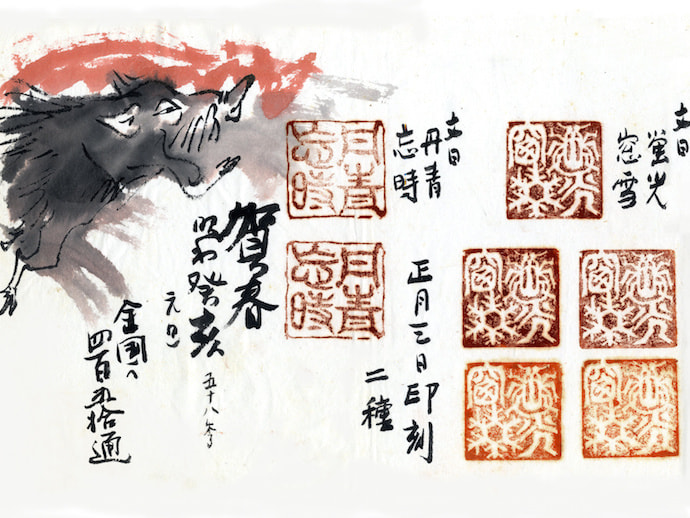 文曰
螢光
窓雪
文曰
丹青
忘時
正月三日印刻
二種
賀春
昭和癸亥
五十八年
元日
全国へ
四百五拾通